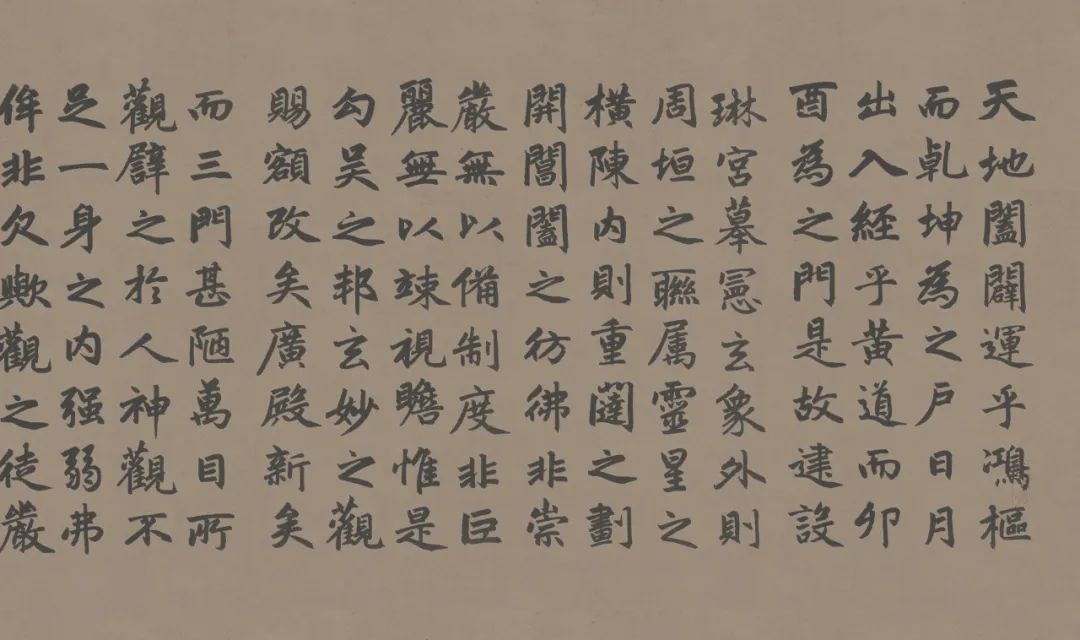 天地闔闢運乎鴻樞
而乹坤為之户日月
出入經乎黄道而卯
酉為之門是故建設
琳宮摹憲玄象外則
周垣之聮属靈星之
横陳内則重闥之劃
開閶闔之彷彿非崇
嚴無以備制度非巨
麗無以竦視瞻惟是
勾吴之邦玄妙之觀
賜額改矣廣殿新矣
而三門甚陋萬目所
觀譬之於人神觀不
足一身之内强弱弗
侔非欠歟觀之徒嚴